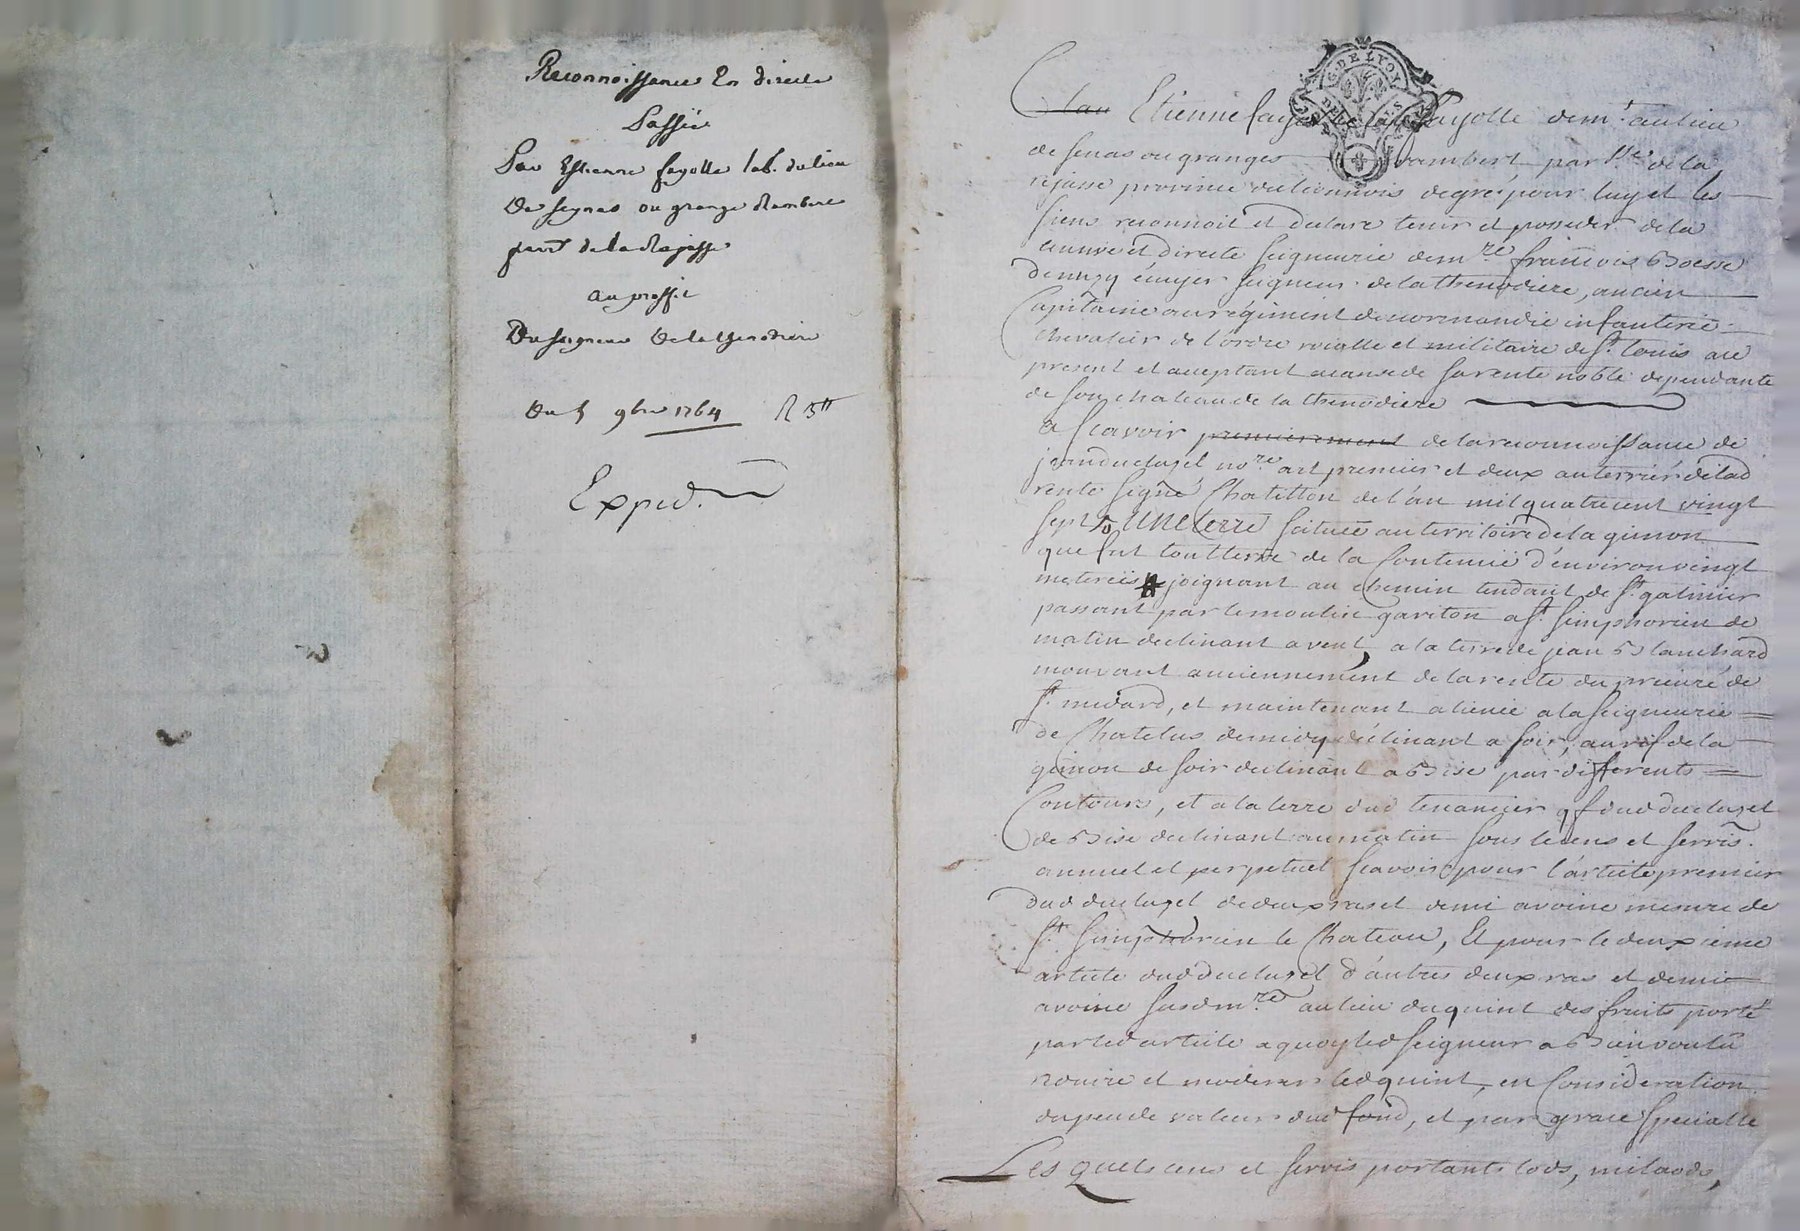 Reconnoissance En directe
Passée
Par Estienne fayolle lab. du lieu
De seynas ou grange Rambert
parr. de la Rajasse
au proffit
Du seigneur De la thenodiere
Du 5 9bre 1764 R 3tt
Exped.
G. DE LYON
Clau Etienne fayolle demt. au lieu
de senas ou granges rambert, parsse. de la
rejasse province du lionnois de gré pour luy et les
siens reconnoit et declare tenir et posseder de la
censive et directe seigneurie de mre. francois Boesse
Denuzy écuyer seigneur de la thenodiere, ancien
Capitaine au régiment de normandie infanterie
chevalier de l'ordre roialle et militaire de st. louis ale
present et acceptant a cause de sa rente noble dependante
de son chateau de la thenodiere
a scavoir premierement de la reconnoissance de
jean duclusel nore. art premier et deux au terrier de lad
rente signé Chatillon de l'an mil quatre cent vingt
sept UNE terre scituée au territoire de la gimon
que fut tout terre de la Contenüe d'environ vingt
meterées joignant au chemin tendant de st. galmier
passant par le moulin gariton a st. simphorien de
matin declinant a vent, a la terre de jean Blanchard
mouvant anciennement de la rente du prieuré de
st. medard, et maintenant alienée a la seigneurie
de Chatelus de midy déclinant a soir, au rif de la
gimon de soir declinant a Bise par differents
Contours, et a la terre dud tenancier qf dud duclusel
de Bise declinant au matin sous le cens et servis
annuel et perpetuel scavoir pour l'article premier
dud duclusel de deux ras et demi avoine mesure de
st. simphorien le Chateau, Et pour le deuxieme
article dud duclusel d'autres deux ras et demie
avoine susd mre. au lieu du quint des fruits porté
par led article a quoy led seigneur a Bien voulu
réduire et moderer led quint, en Consideration
du peu de valeur dud fond, et par grace specialle
Les quels cens et servis portants lods, milaods,